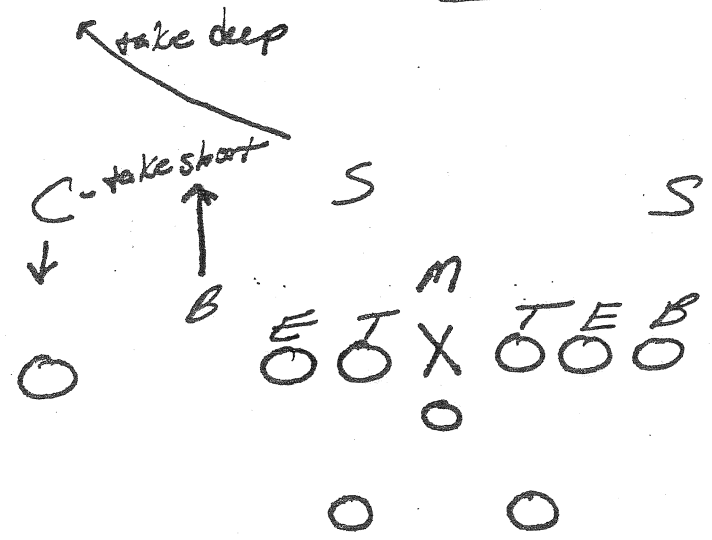 take deep
C - take short
S
S
M
B
E
T
T
E
B
X